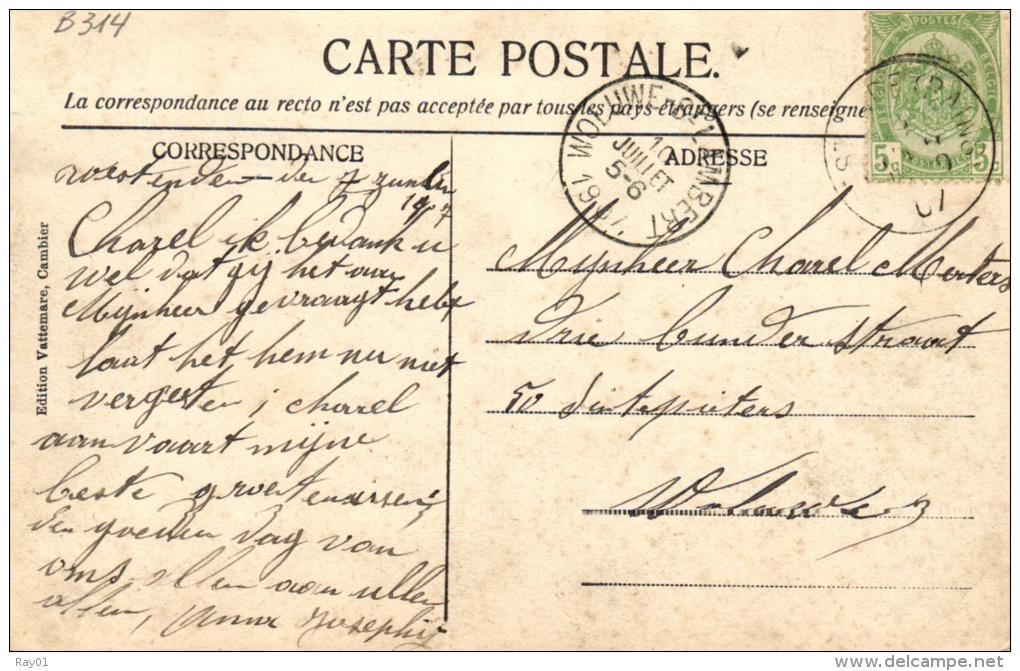 B314
CARTE POSTALE.
La correspondance au recto n'est pas acceptée par tous les pays étrangers (se renseigne
CORRESPONDANCE
ADRESSE
WOLUWE-St-LAMBERT
10
JUILLET
5-6
1907
POSTES
BELGIQUE
BELGIE
5c
5c
07
Edition Vattemare, Cambier
den 7
1907
Charel ik bedank u
wel dat gij het aan
Mijnheer gevraagt hebt
laat het hem nu niet
vergeten, charel
aanvaart mijne
beste groetenissen
den goeden dag van
ons allen aan ullen
allen, Anna Josephis
Mijnheer Charel Mertens
Drie bunder straat
50 sintpieters
Woluwe
Ray01
delcampe.net